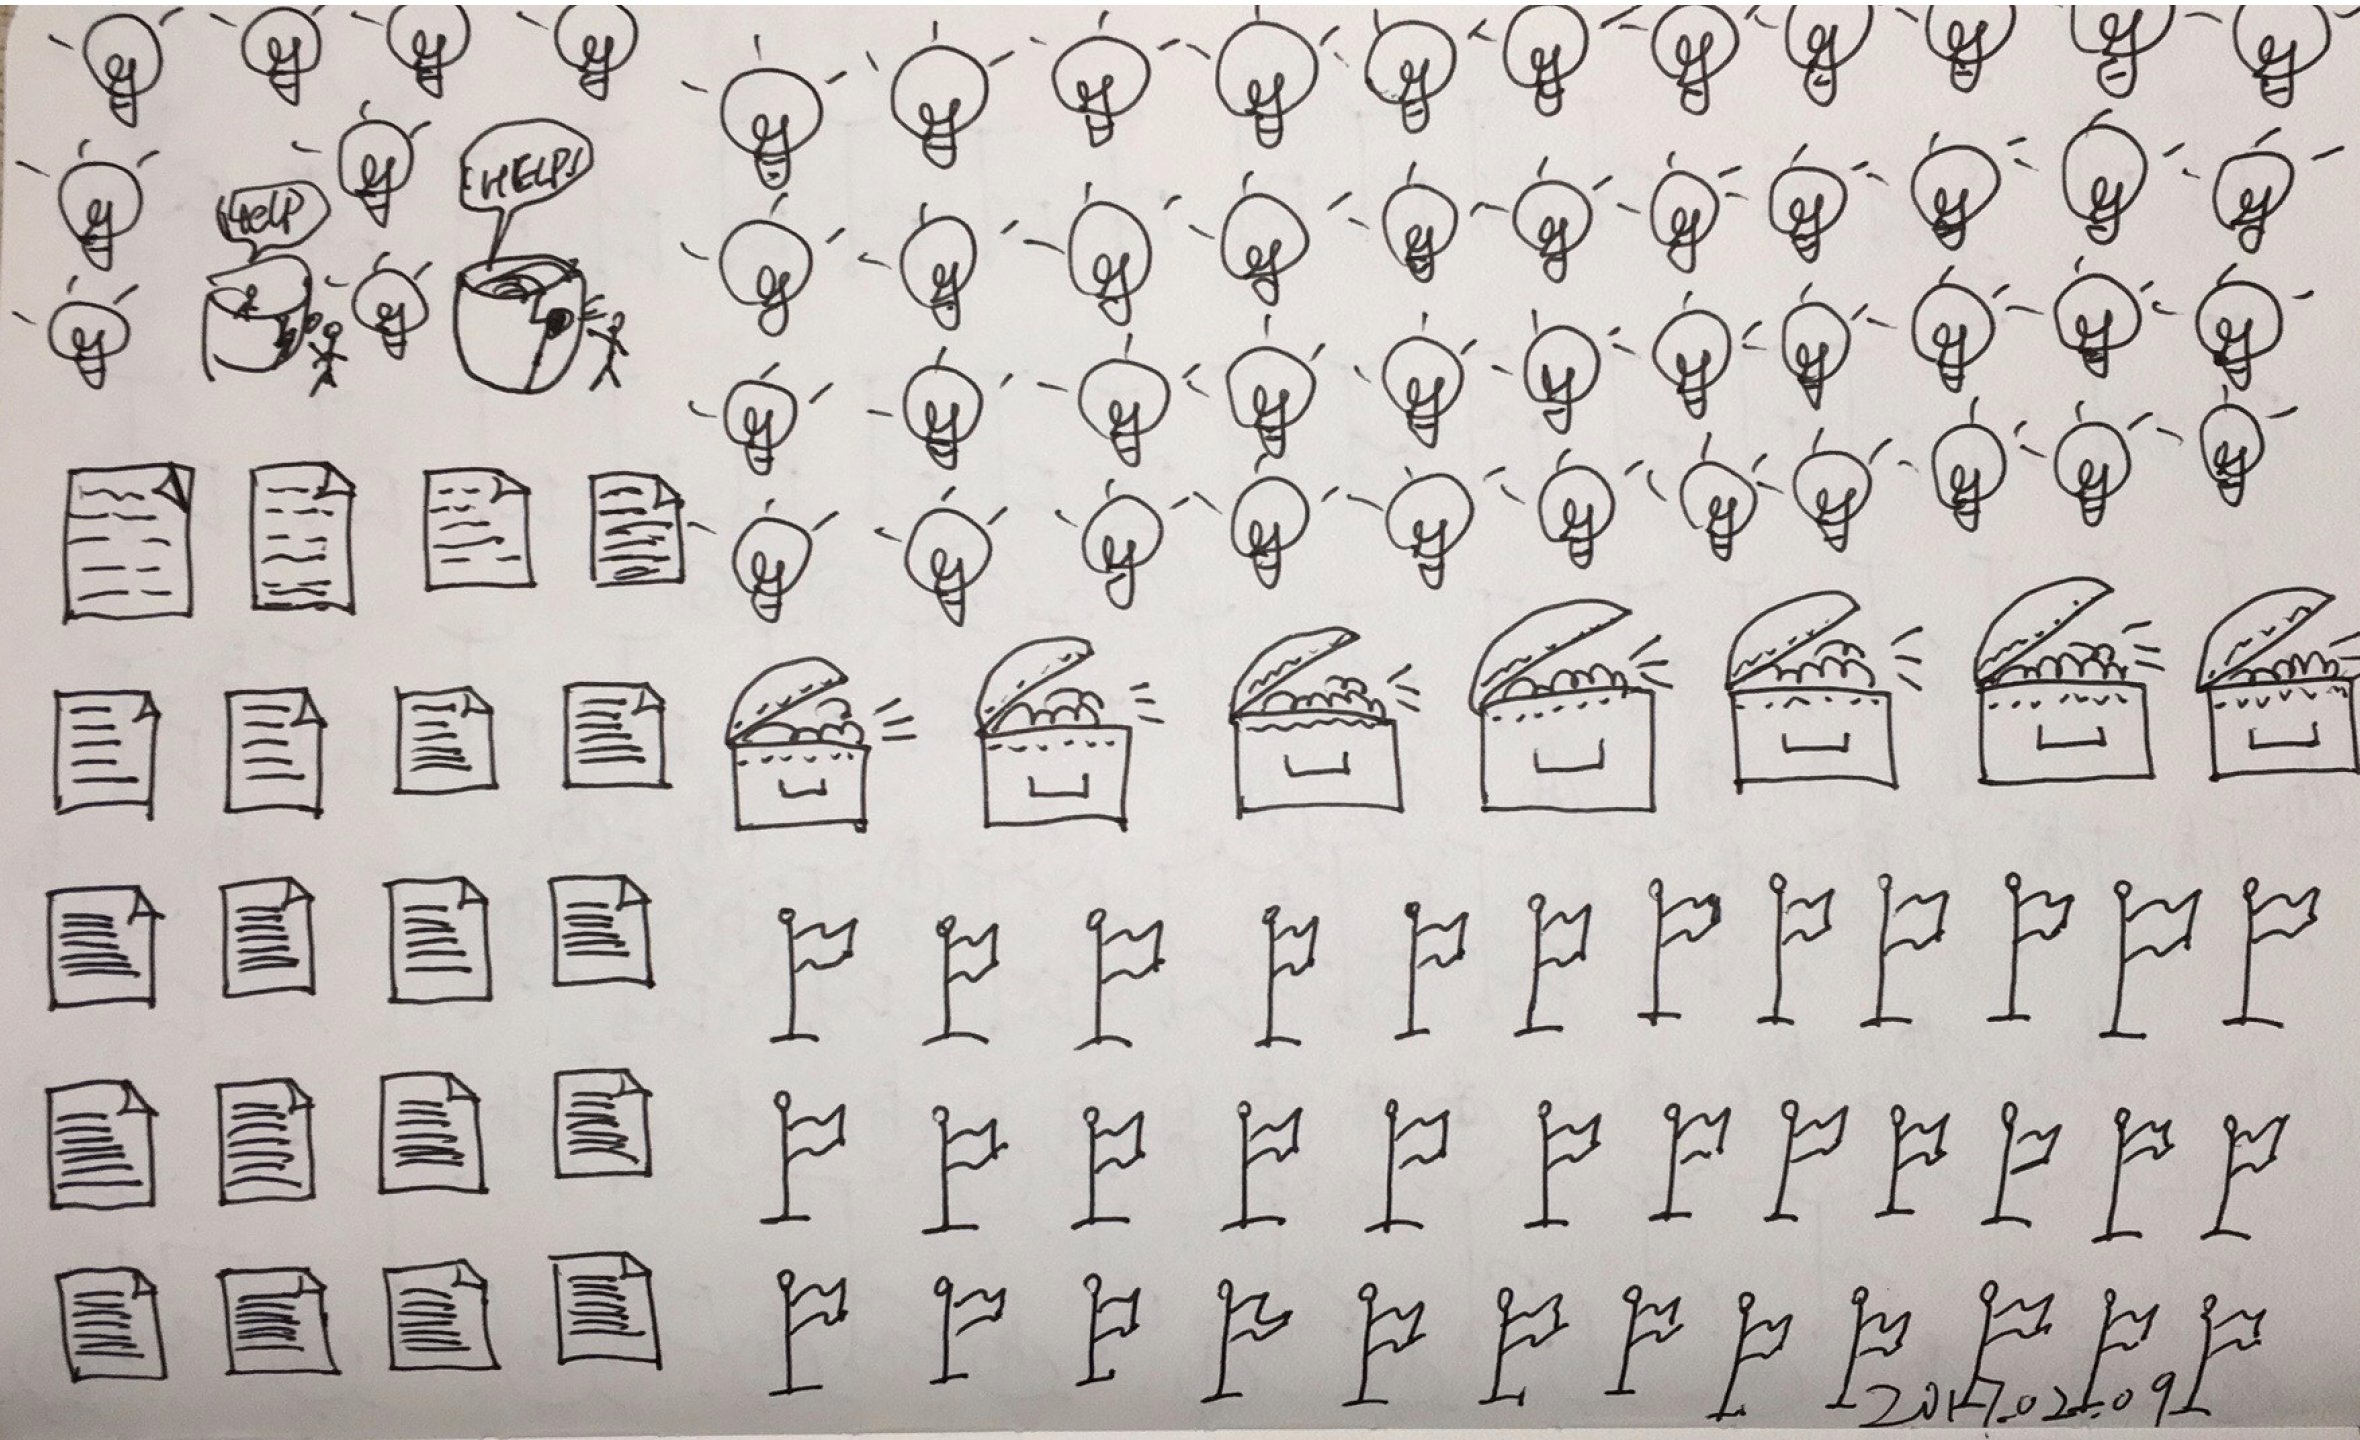 HELP!
HelP
2017.02.09